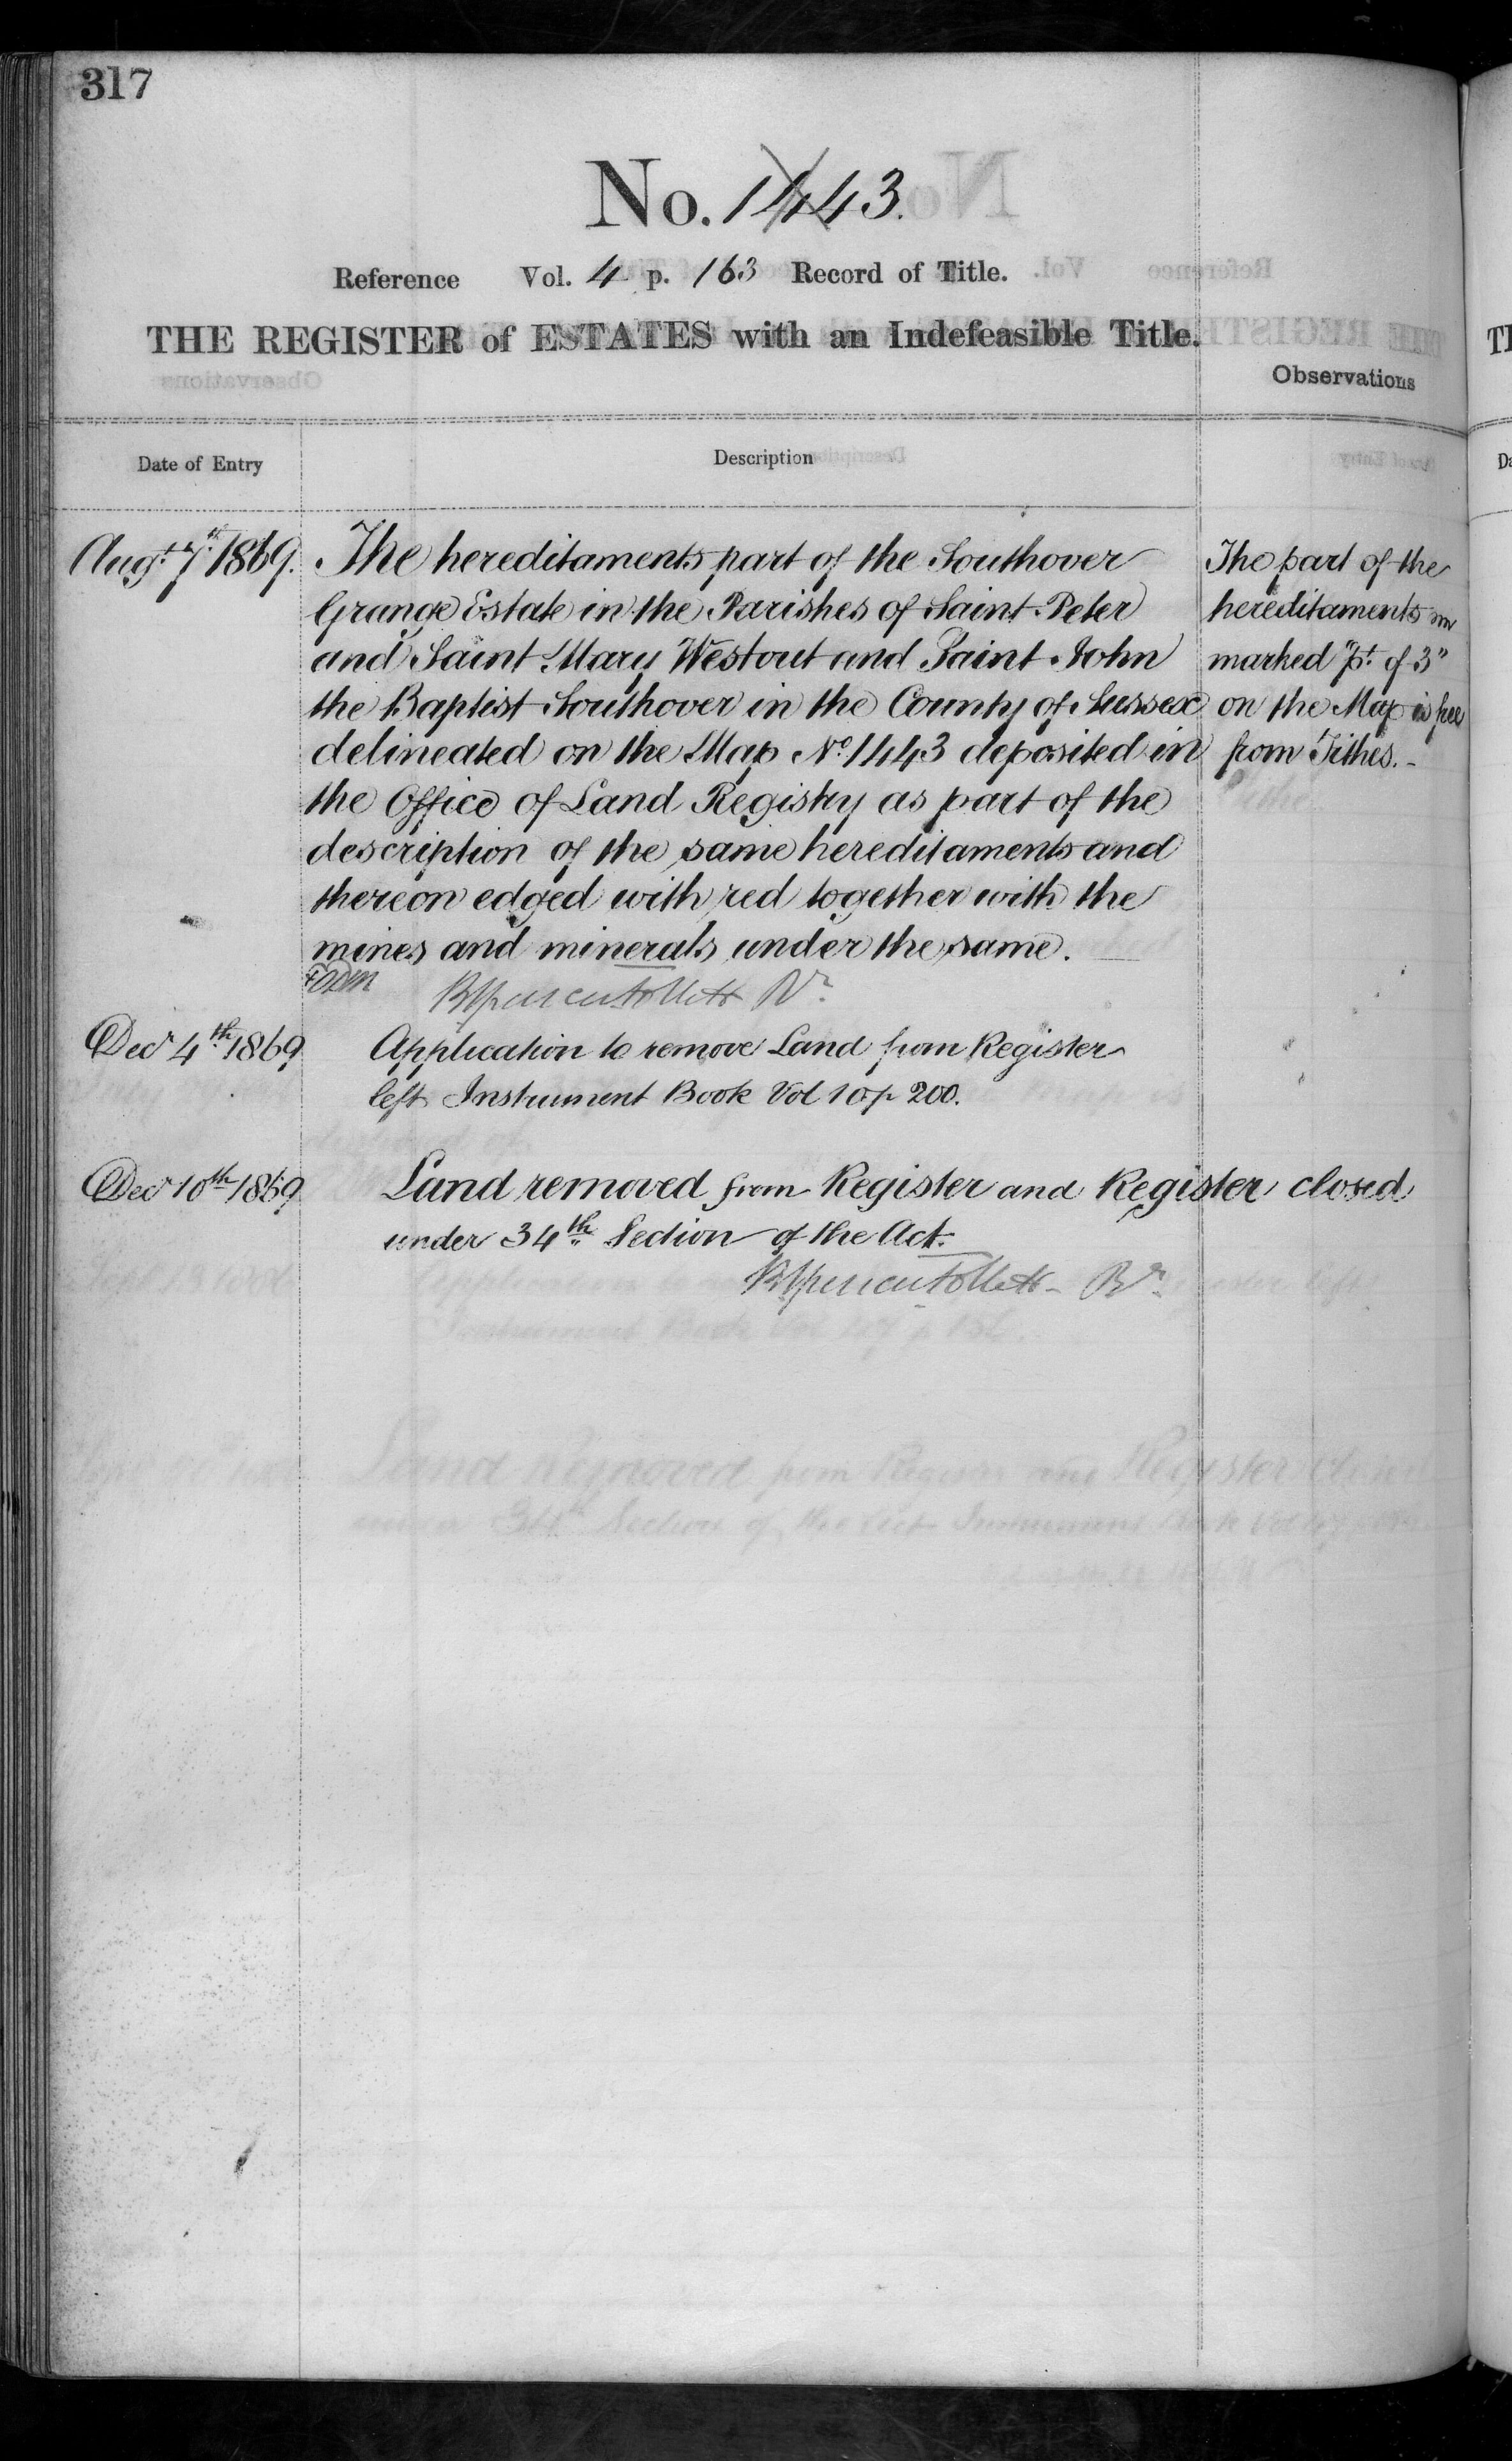 317
No. 1443.
Reference Vol. 4 p. 163 Record of Title.
THE REGISTER of ESTATES with an Indefeasible Title.
Observations
Date of Entry
Description
Augt. 7th 1869.
The hereditaments part of the Southover
Grange Estate in the Parishes of Saint Peter
and Saint Mary Westout and Saint John
the Baptist Southover in the County of Sussex
delineated on the Map No. 1443 deposited in
the Office of Land Registry as part of the
description of the same hereditaments and
thereon edged with red together with the
mines and minerals under the same.
The part of the
hereditaments
marked "pt. of 3"
on the Map is free
from Tithes.-
Decr 4th 1869
Application to remove Land from Register
left Instrument Book Vol 10 p 200.
Decr 10th 1869
Land removed from Register and Register closed
under 34th Section of the Act.